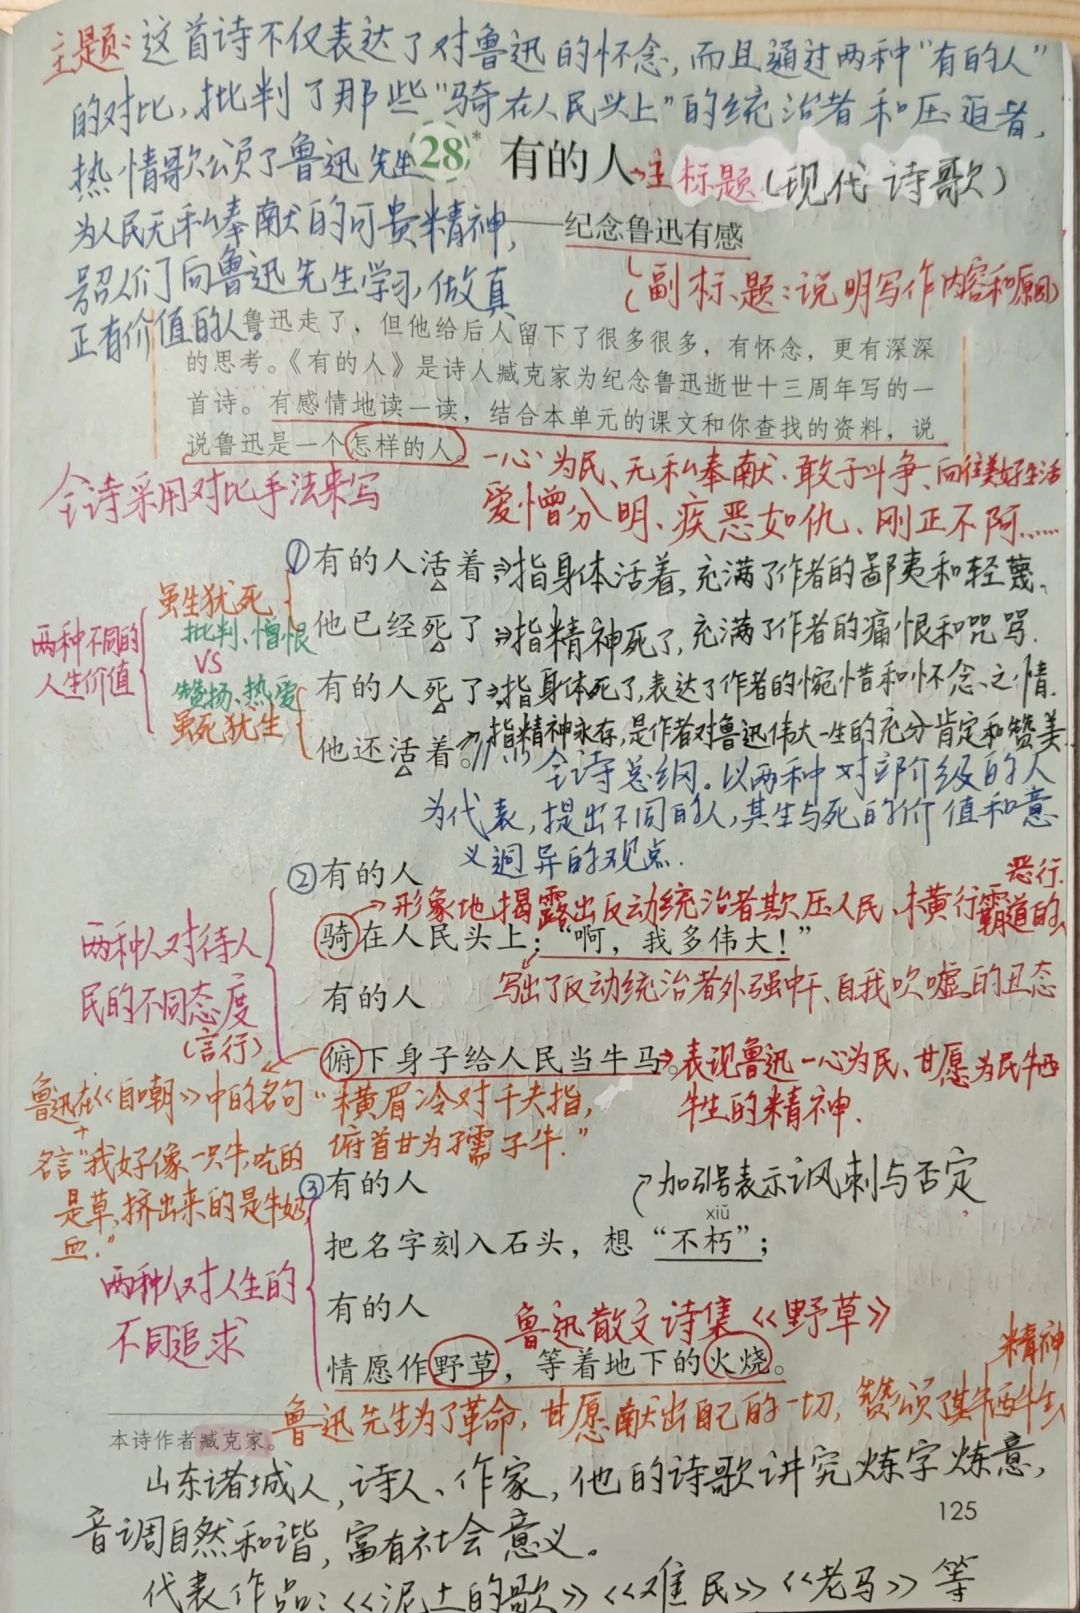 主题:这首诗不仅表达了对鲁迅的怀念,而且通过两种“有的人”
的对比,批判了那些“骑在人民头上”的统治者和压迫者,
热情歌颂了鲁迅先生
为人民无私奉献的可贵精神,
号召人们向鲁迅先生学习,做真
正有价值的人。
28* 有的人→主标题(现代诗歌)
——纪念鲁迅有感
(副标题:说明写作内容和原因)
鲁迅走了,但他给后人留下了很多很多,有怀念,更有深深
的思考。《有的人》是诗人臧克家为纪念鲁迅逝世十三周年写的一
首诗。有感情地读一读,结合本单元的课文和你查找的资料,说
说鲁迅是一个怎样的人。
一心为民、无私奉献、敢于斗争、向往美好生活
爱憎分明、疾恶如仇、刚正不阿……
全诗采用对比手法来写
①有的人活着→指身体活着,充满了作者的鄙夷和轻蔑.
他已经死了→指精神死了,充满了作者的痛恨和咒骂.
有的人死了→指身体死了,表达了作者的惋惜和怀念之情.
他还活着。→指精神永存,是作者对鲁迅伟大一生的充分肯定和赞美.
两种不同的
人生价值
虽生犹死
批判、憎恨
VS
赞扬、热爱
虽死犹生
全诗总纲。以两种对立阶级的人
为代表,提出不同的人,其生与死的价值和意
义迥异的观点.
②有的人
→形象地揭露出反动统治者欺压人民、横行霸道的
恶行.
骑在人民头上:“啊,我多伟大!”
写出了反动统治者外强中干、自我吹嘘的丑态
有的人
俯下身子给人民当牛马。
→表现鲁迅一心为民、甘愿为民牺
牲的精神.
两种人对待人
民的不同态度
(言行)
鲁迅在《自嘲》中的名句“横眉冷对千夫指,
俯首甘为孺子牛.”
+
名言“我好像一只牛,吃的
是草,挤出来的是牛奶,
血.”
③有的人
→加引号表示讽刺与否定
xiǔ
把名字刻入石头,想“不朽”;
有的人
鲁迅散文诗集《野草》
情愿作野草,等着地下的火烧。
两种人对人生的
不同追求
鲁迅先生为了革命,甘愿献出自己的一切,赞颂了其牺牲
精神
本诗作者臧克家。
山东诸城人,诗人、作家,他的诗歌讲究炼字炼意,
125
音调自然和谐,富有社会意义。
代表作品:《泥土的歌》《难民》《老马》等